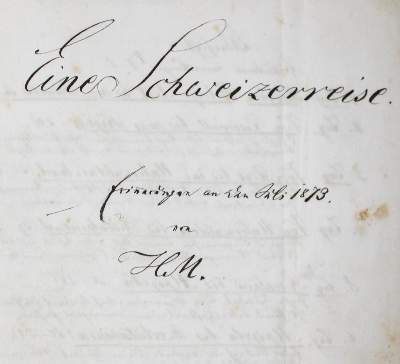 Eine Schweizerreise.
Erinnerungen an den Juli 1873.
von
H.M.